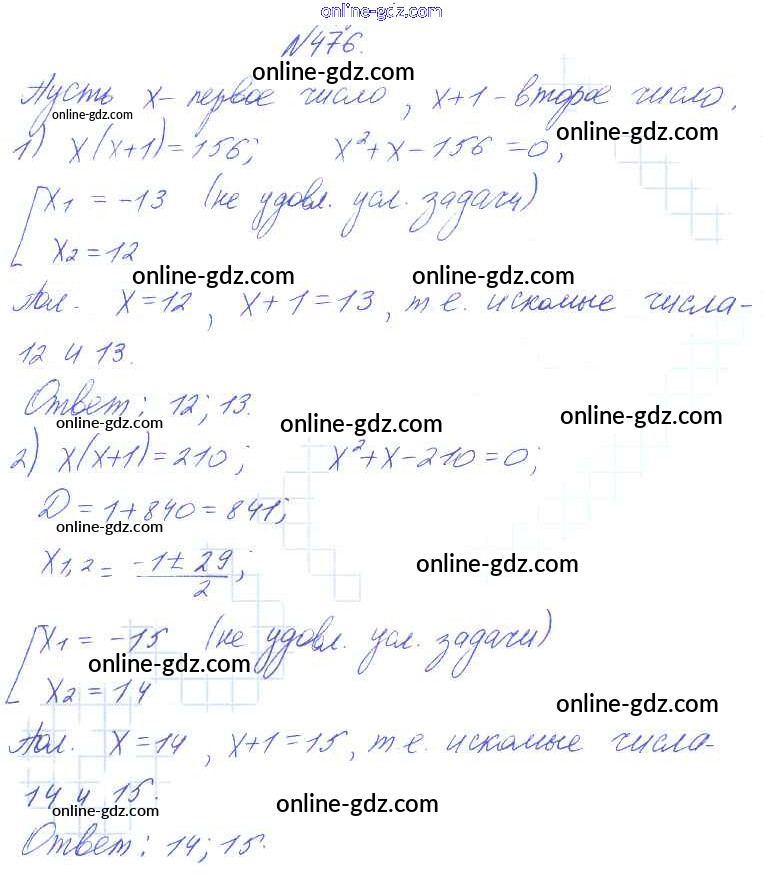 online-gdz.com
№476.
online-gdz.com
Пусть x - первое число, x+1 - второе число.
online-gdz.com online-gdz.com
1) x(x+1)=156; x²+x-156=0;
[x₁ = -13 (не удовл. усл. задачи)
x₂ = 12
online-gdz.com online-gdz.com
x=12, x+1=13, т.е. искомые числа -
12 и 13.
Ответ: 12; 13.
online-gdz.com online-gdz.com online-gdz.com
2) x(x+1)=210; x²+x-210=0;
D=1+840=841;
online-gdz.com
x₁,₂ = (-1±29)/2;
online-gdz.com
[x₁ = -15 (не удовл. усл. задачи)
online-gdz.com
x₂ = 14
online-gdz.com
x=14, x+1=15, т.е. искомые числа -
14 и 15.
online-gdz.com online-gdz.com
Ответ: 14; 15.